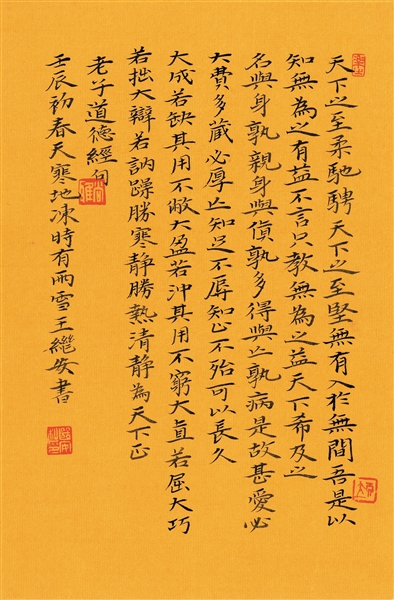 天下之至柔馳騁天下之至堅無有入於無間吾是以
知無為之有益不言只教無為之益天下希及之
名與身孰親身與貨孰多得與亡孰病是故甚愛必
大費多藏必厚亡知足不辱知止不殆可以長久
大成若缺其用不敝大盈若沖其用不窮大直若屈大巧
若拙大辯若訥躁勝寒靜勝熱清靜為天下正
老子道德經句
壬辰初春天寒地凍時有雨雪王繼安書